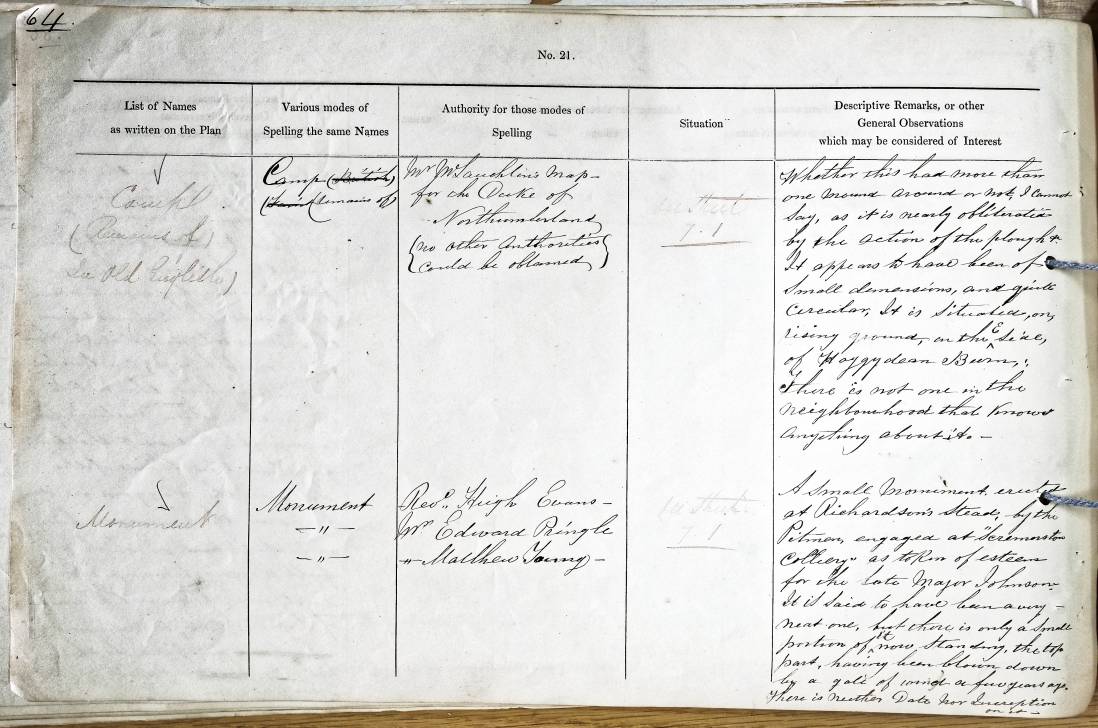 64.
No. 21.
List of Names
as written on the Plan
Various modes of
Spelling the same Names
Authority for those modes of
Spelling
Situation
Descriptive Remarks, or other
General Observations
which may be considered of Interest
(Remains of)
in Old English)
Camp (British)
(remains of)
Mr McLauchlin's Map
for the Duke of
Northumberland
(no other Authorities
could be obtained)
7.1
Whether this had more than
one mound around or not, I cannot
Say, as it is nearly obliterated
by the action of the plough &c
It appears to have been of
Small demensions, and quite
circular, It is Situated, on,
rising ground, on the E Side,
of Haggydean Burn,
There is not one in the
neighbourhood that Knows
Anything about it. —
Monument
Monument
—"—
—"—
Revd. Hugh Evans —
Mr Edward Pringle
" Matthew Young —
7.1
A Small Monument erected
at Richardson's Stead, by the
Pitmen, engaged at "Scremerston
Colliery" as token of esteem
for the late Major Johnson
It is said to have been a very —
neat one, but there is only a Small
portion of it now Standing, the top
part, having been blown down
by a gale of wind a few years ago.
There is neither Date Nor Inscription
on it —